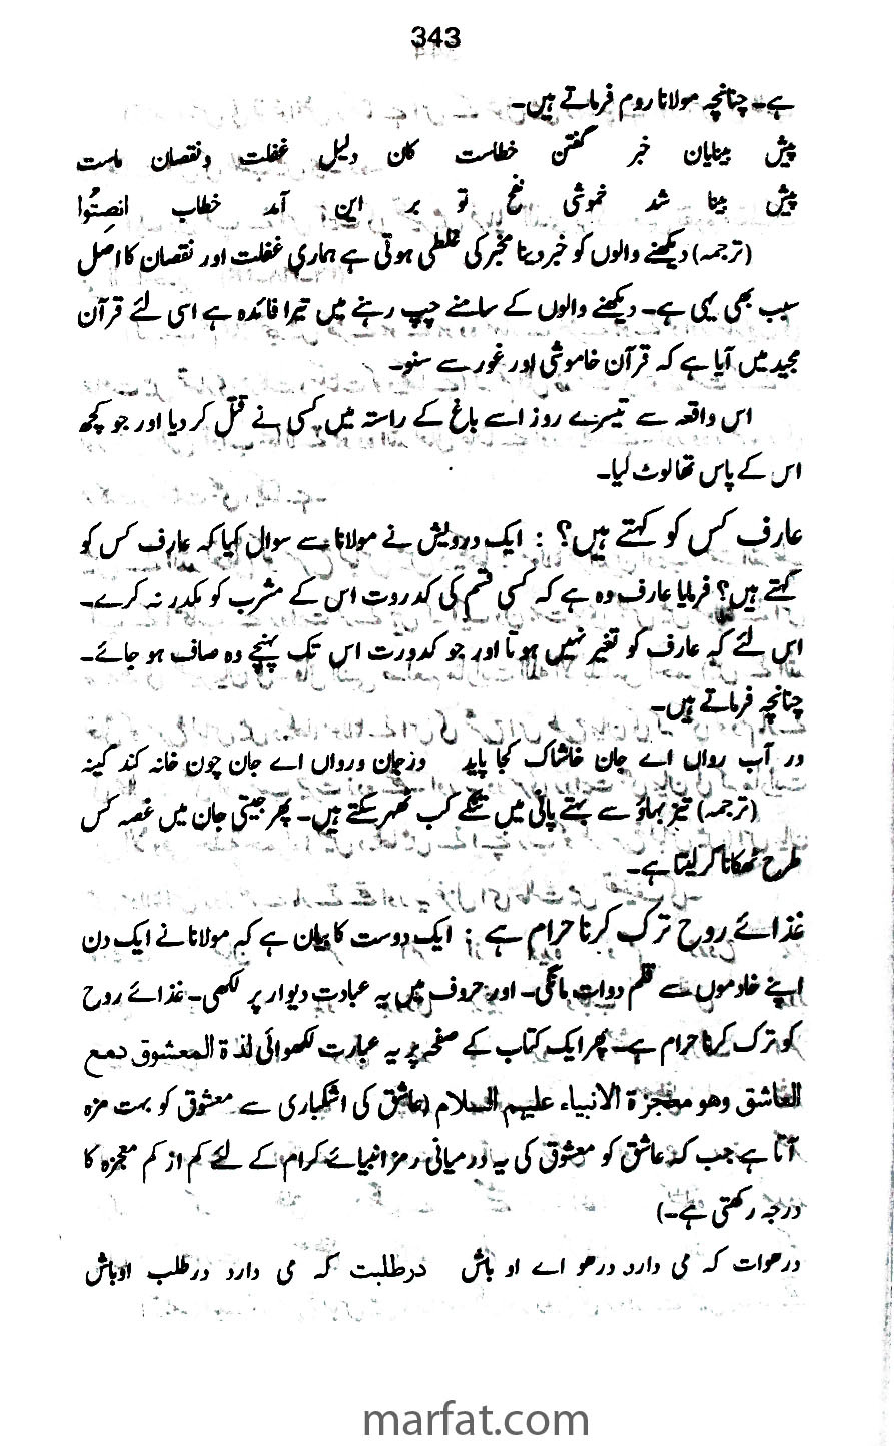 343
ہے۔ چنانچہ مولانا روم فرماتے ہیں۔
پیش بینایان خبر گفتن خطاست کان دلیل غفلت و نقصان ماست
پیش بینا شد خموشی نفع تو بر این آمد خطاب انصِتُوا
(ترجمہ) دیکھنے والوں کو خبر دینا مخبر کی غلطی ہوتی ہے ہماری غفلت اور نقصان کا اصل
سبب بھی یہی ہے۔ دیکھنے والوں کے سامنے چپ رہنے میں تیرا فائدہ ہے اسی لئے قرآن
مجید میں آیا ہے کہ قرآن خاموشی اور غور سے سنو۔
اس واقعہ سے تیسرے روز اسے باغ کے راستہ میں کسی نے قتل کر دیا اور جو کچھ
اس کے پاس تھا لوٹ لیا۔
عارف کس کو کہتے ہیں؟ : ایک درویش نے مولانا سے سوال کیا کہ عارف کس کو
کہتے ہیں؟ فرمایا عارف وہ ہے کہ کسی قسم کی کدروت اس کے مشرب کو مکدر نہ کرے۔
اس لئے کہ عارف کو تغیر نہیں ہوتا اور جو کدورت اس تک پہنچے وہ صاف ہو جائے۔
چنانچہ فرماتے ہیں۔
در آب رواں اے جان خاشاک کجا پاید وزجان ورواں اے جان چون خانہ کند کینہ
(ترجمہ) تیز بہاؤ سے بہتے پانی میں تنکے کب ٹھہر سکتے ہیں۔ پھر جیتی جان میں غصہ کس
طرح ٹھکانا کر لیتا ہے۔
غذائے روح ترک کرنا حرام ہے : ایک دوست کا بیان ہے کہ مولانا نے ایک دن
اپنے خادموں سے قلم دوات مانگی۔ اور حروف میں یہ عبادت دیوار پر لکھی۔ غذائے روح
کو ترک کرنا حرام ہے۔ پھر ایک کتاب کے صفحہ پر یہ عبارت لکھوائی لذۃ المعشوق دمع
العاشق وھو معجزۃ الانبیاء علیھم السلام (عاشق کی اشکباری سے معشوق کو بہت مزہ
آتا ہے جب کہ عاشق کو معشوق کی یہ درمیانی رمز انبیائے کرام کے لئے کم از کم معجزہ کا
درجہ رکھتی ہے۔)
درھوات کہ می دارد درھو اے او باش درطلبت کہ می دارد درطلب اوباش
marfat.com